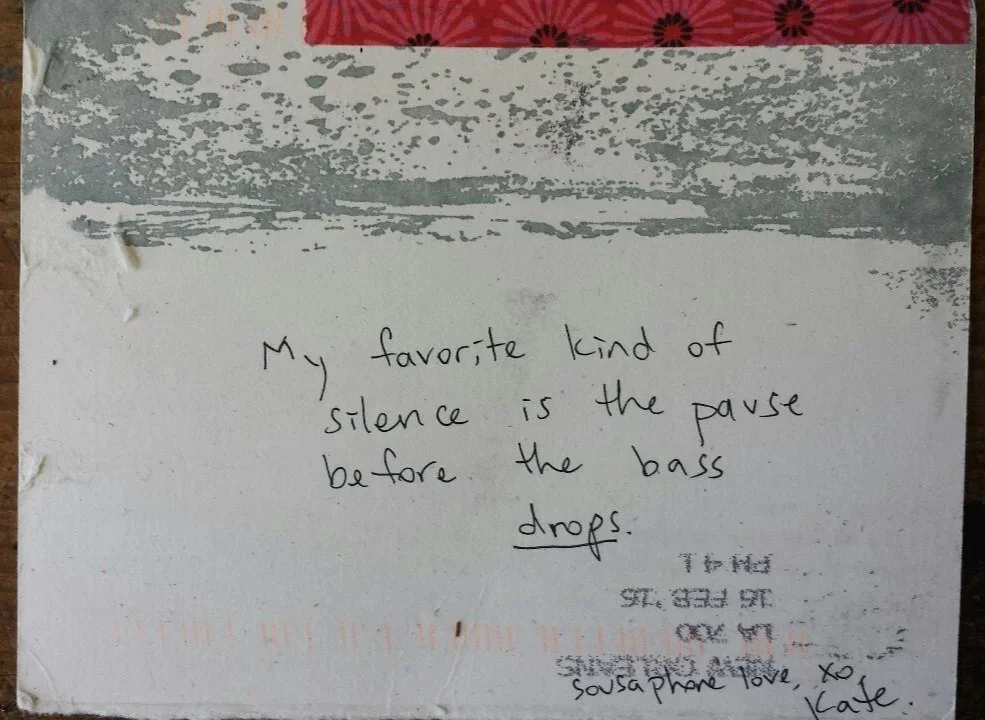 My favorite kind of
silence is the pause
before the bass
drops.
NEW ORLEANS
LA 700
16 FEB '16
PM 4 L
sousaphone love, xo,
Kate.